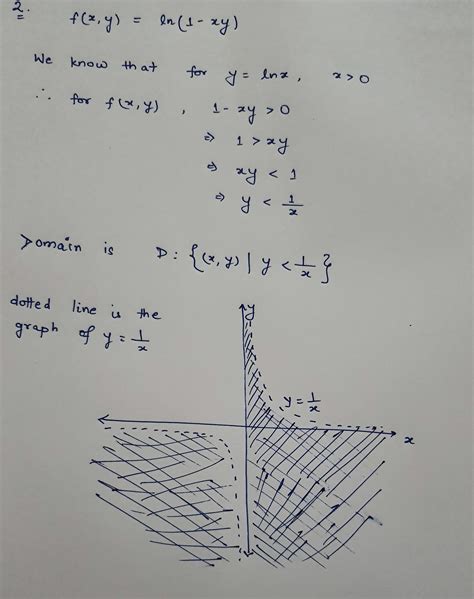 2.
f(x,y) = ln(1-xy)
We know that for y = lnx, x>0
∴ for f(x,y), 1-xy > 0
⇒ 1 > xy
⇒ xy < 1
⇒ y < 1/x
Domain is D: {(x,y) | y < 1/x}
dotted line is the
graph of y = 1/x
y
y = 1/x
x